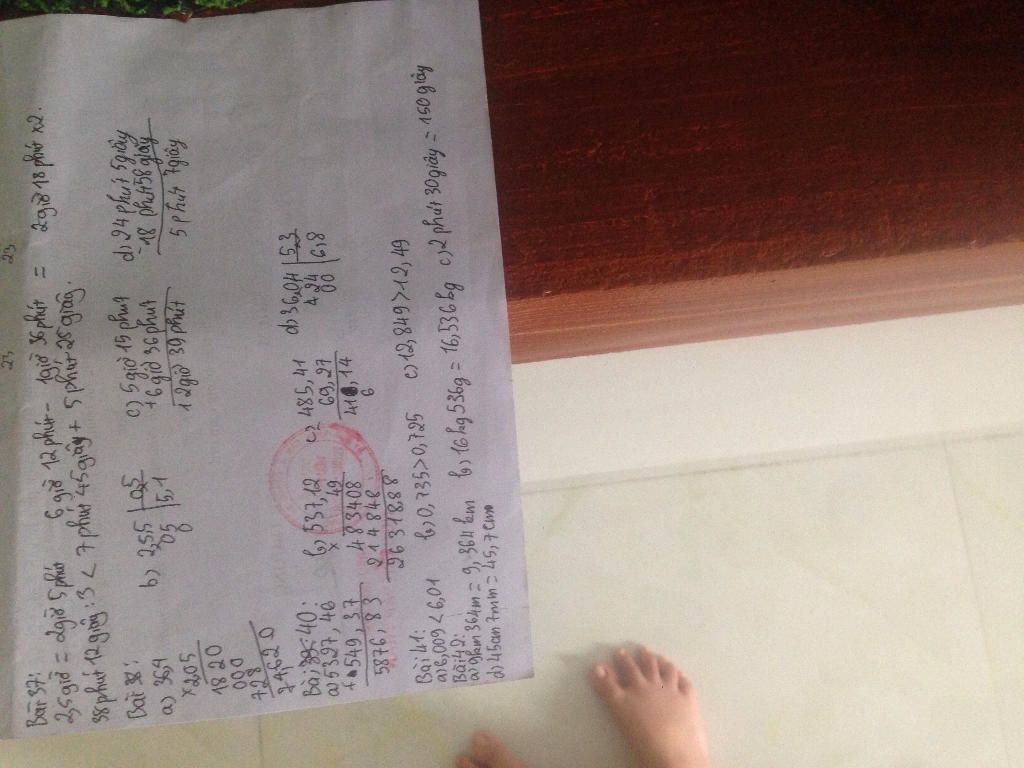 23 23
Bài 37:
2,5 giờ = 2 giờ 5 phút 6 giờ 12 phút - 1 giờ 36 phút = 2 giờ 18 phút x 2.
38 phút 12 giây : 3 < 7 phút 45 giây + 5 phút 25 giây.
Bài 38:
a) 36,4
x 205
1820
000
728
74620
b) 2,55 0,5
05 5,1
c) 5 giờ 15 phút
+ 6 giờ 36 phút
12 giờ 39 phút
d) 24 phút 5 giây
- 18 phút 58 giây
5 phút 7 giây
Bài 40:
a) 5327,46
+ 549,37
5876,83
b) 537,12
x 49
483408
214848
2631888
c) 485,41
69,27
416,14
6
d) 36,04 5,3
4 24 6,8
00
Bài 41:
a) 6,009 < 6,01 b) 0,735 > 0,725 c) 12,849 > 12,49
Bài 42:
a) 9km 364m = 9,364 km b) 16kg 536g = 16,536 kg c) 2 phút 30 giây = 150 giây
d) 45cm 7mm = 45,7 cm